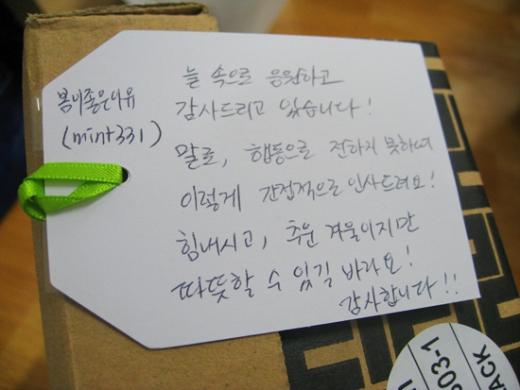 봄비좋은이유
(mint331)
늘 속으로 응원하고
감사드리고 있습니다!
말로, 행동으로 전하지 못하여
이렇게 간접적으로 인사드려요!
힘내시고, 추운 겨울이지만
따뜻할 수 있길 바라요!
감사합니다!!
03-1
ACK